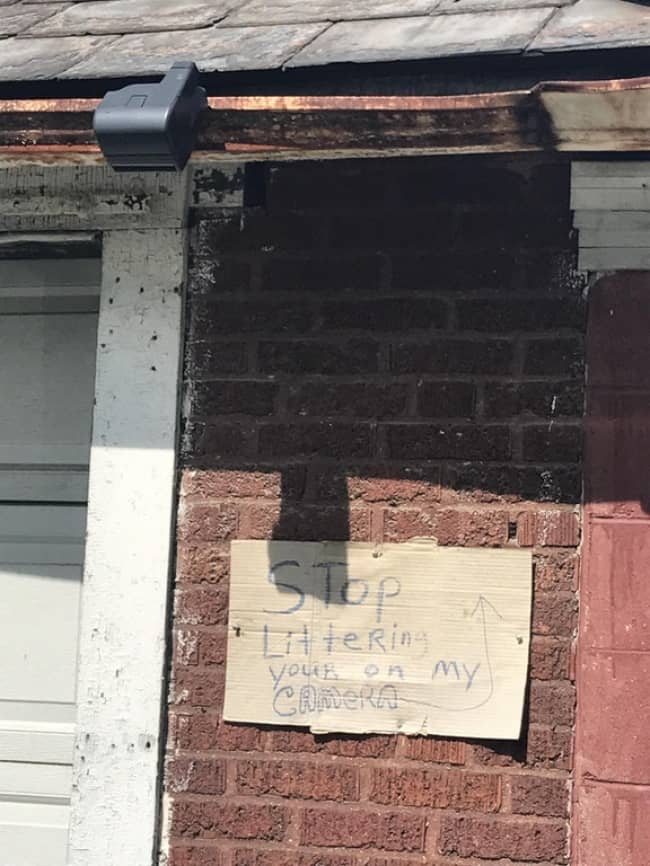 STop
LitteRing
youR on My
CAMERA